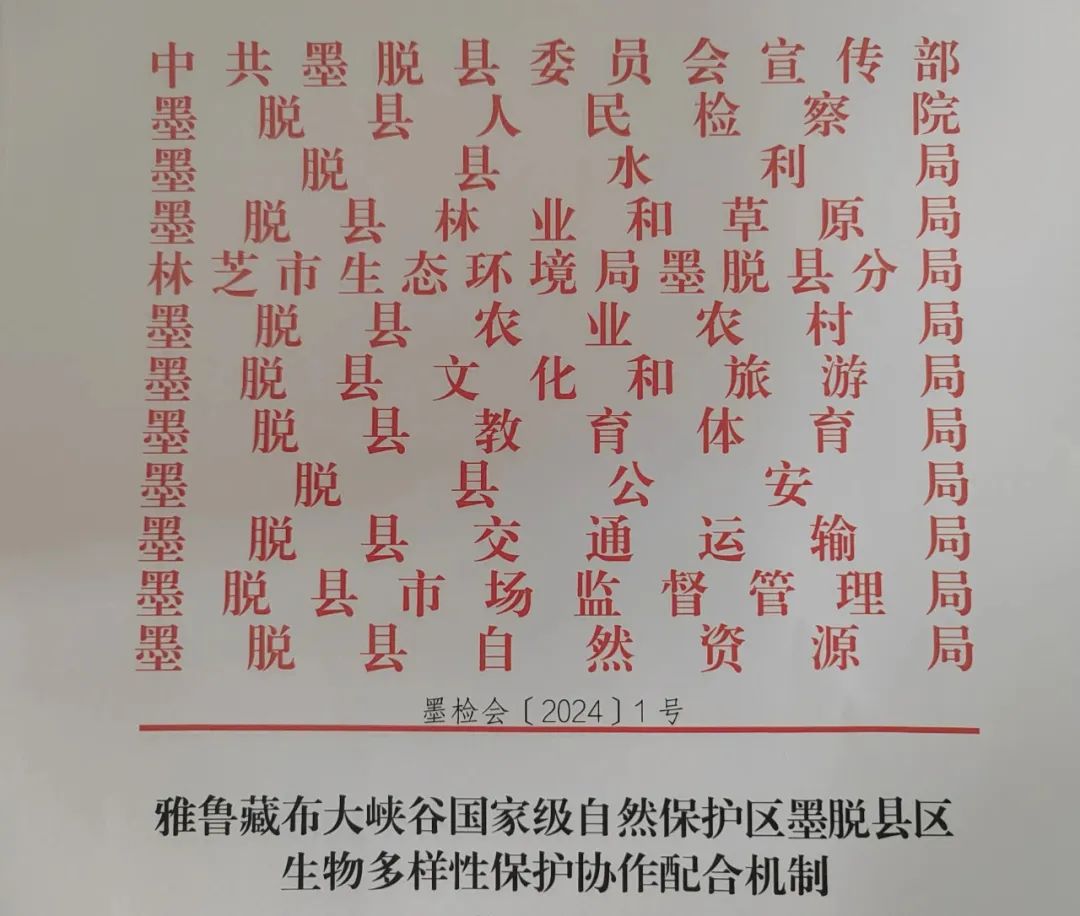 中共墨脱县委员会宣传部
墨脱县人民检察院
墨脱县水利局
墨脱县林业和草原局
林芝市生态环境局墨脱县分局
墨脱县农业农村局
墨脱县文化和旅游局
墨脱县教育体育局
墨脱县公安局
墨脱县交通运输局
墨脱县市场监督管理局
墨脱县自然资源局
墨检会〔2024〕1号
雅鲁藏布大峡谷国家级自然保护区墨脱县区
生物多样性保护协作配合机制